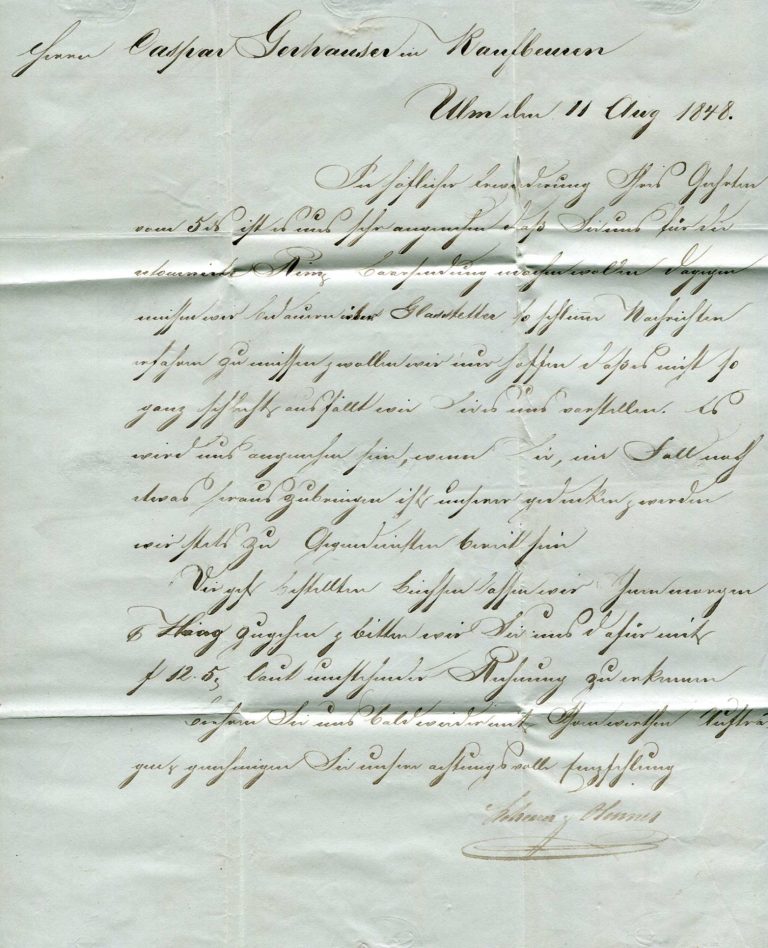 Herrn Caspar Gerhauser in Kaufbeuren
Ulm den 11 Aug 1848.
In höflicher Erwiederung Ihres Geehrten
vom 5 ds ist es uns sehr angenehm daß Sie uns für die
Baarsendung machen wollen dagegen
müssen wir bedauern über Glasstetter so schlimme Nachrichten
erfahren zu müssen, wollen wir nur hoffen daß es nicht so
ganz schlecht ausfällt wie Sie es uns vorstellen. Es
wird uns angenehm sein, wenn Sie, im Fall noch
etwas heraus zubringen ist, unserer gedenken, werden
wir stets zu Gegendiensten bereit sein
Die gef. bestellten Büchsen lassen wir Ihnen morgen
p Haag zugehen & bitten wir Sie uns dafür mit
f 12. 5 laut umstehender Rechnung zu erkennen
Beehren Sie uns bald wieder mit Ihren werthen Aufträ
gen, genehmigen Sie unsere achtungsvolle Empfehlung